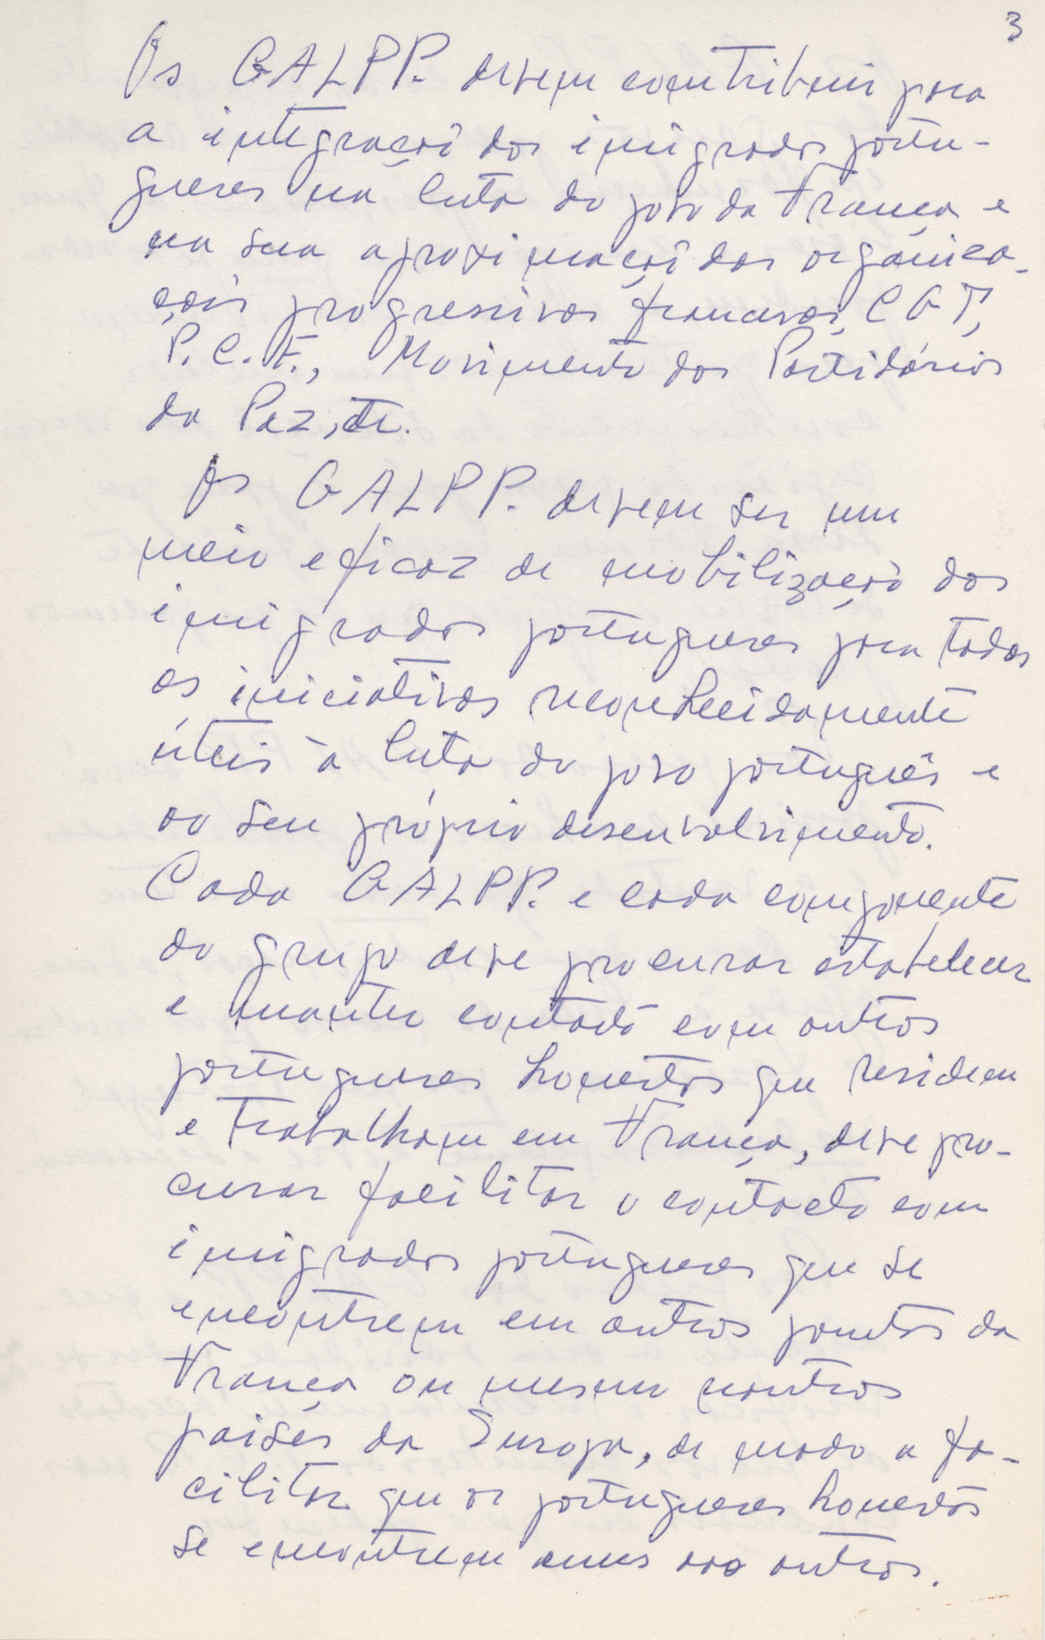 3
Os GALPP. devem contribuir para
a integração dos imigrados portu-
gueses na luta do povo da França e
na sua aproximação das organiza-
ções progressivas francesas, C G T,
P. C. F., Movimento dos Partidários
da Paz, etc.
Os GALPP. devem ser um
meio eficaz de mobilização dos
imigrados portugueses para todas
as iniciativas reconhecidamente
úteis à luta do povo português e
ao seu próprio desenvolvimento.
Cada GALPP. e cada componente
do grupo deve procurar estabelecer
e manter contacto com outros
portugueses honestos que residem
e trabalham em França, deve pro-
curar facilitar o contacto com
imigrados portugueses que se
encontrem em outros pontos da
França ou mesmo noutros
países da Europa, de modo a fa-
cilitar que os portugueses honestos
se encontrem unos aos outros.